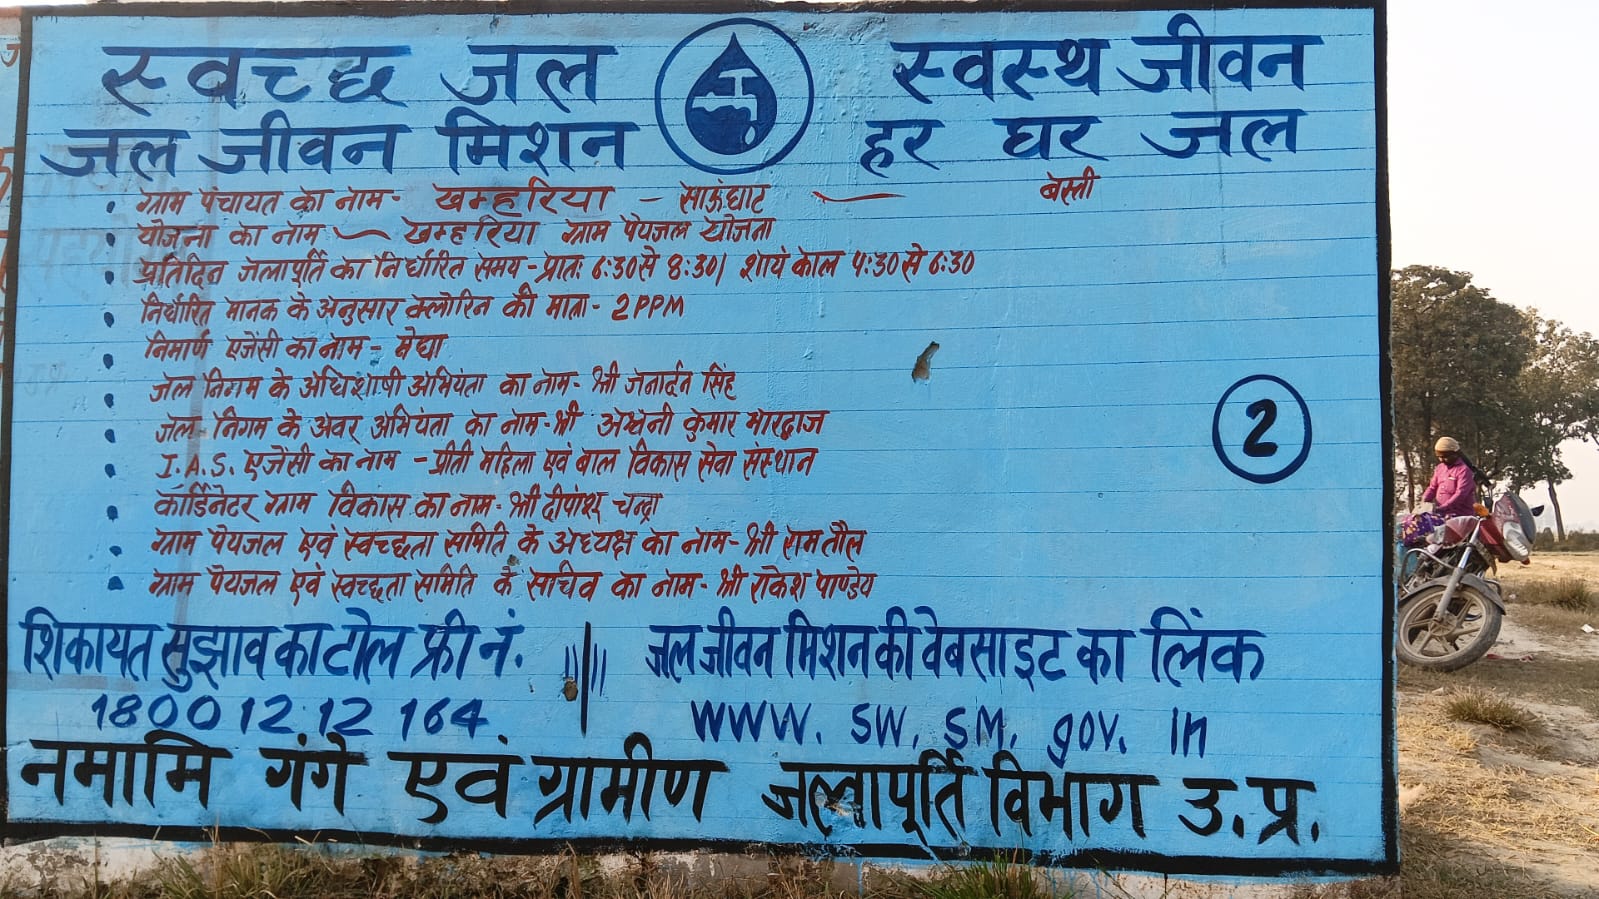 स्वच्छ जल स्वस्थ जीवन
जल जीवन मिशन हर घर जल
ग्राम पंचायत का नाम- खम्हरिया - साऊंघाट - बस्ती
योजना का नाम - खम्हरिया ग्राम पेयजल योजना
प्रतिदिन जलापूर्ति का निर्धारित समय - प्रातः 6:30 से 8:30/ शायं काल 4:30 से 6:30
निर्धारित मानक के अनुसार क्लोरिन की मात्रा - 2 PPM
निमार्ण एजेंसी का नाम - मेघा
जल निगम के अधिशाषी अभियंता का नाम- श्री जनार्दन सिंह
जल निगम के अवर अभियंता का नाम - श्री अश्वनी कुमार भारद्वाज
I.A.S. एजेंसी का नाम - प्रीती महिला एवं बाल विकास सेवा संस्थान
कॉर्डिनेटर ग्राम विकास का नाम - श्री दीपांशु चन्द्रा
ग्राम पेयजल एवं स्वच्छता समिति के अध्यक्ष का नाम - श्री राम तौल
ग्राम पेयजल एवं स्वच्छता समिति के सचिव का नाम - श्री राकेश पाण्डेय
2
शिकायत सुझाव का टोल फ्री नं. जल जीवन मिशन की वेबसाइट का लिंक
1800 12 12 164 www. sw. sm. gov. in
नमामि गंगे एवं ग्रामीण जलापूर्ति विभाग उ.प्र.